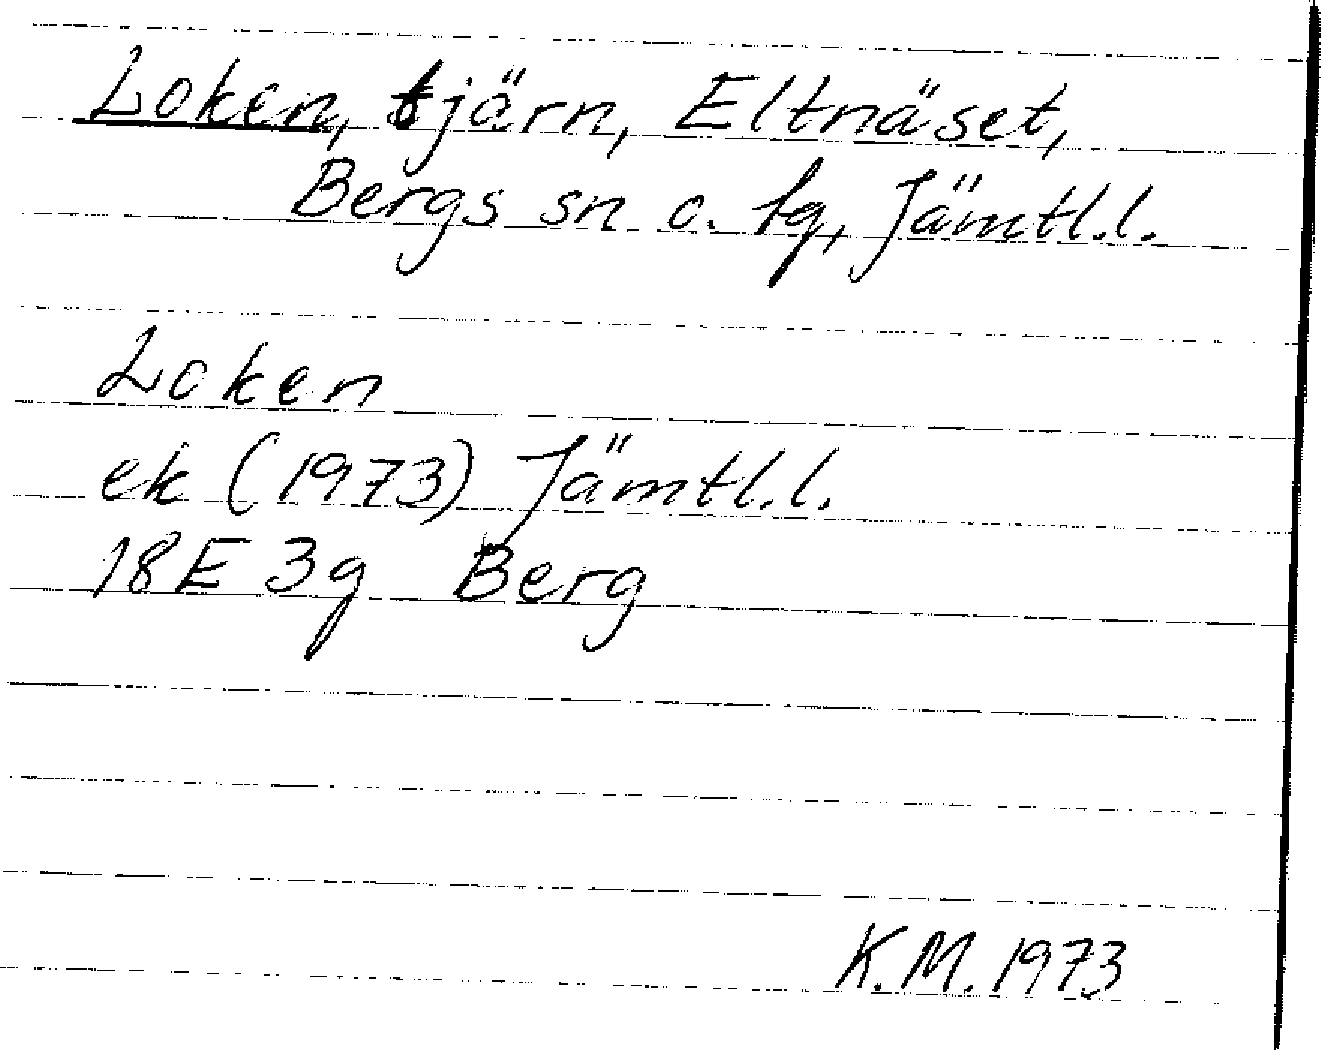 Loken, tjärn, Eltnäset,
Bergs sn o. tg, Jämtl.l.
Loken
ek (1973) Jämtl.l.
18E 3g Berg
K.M. 1973